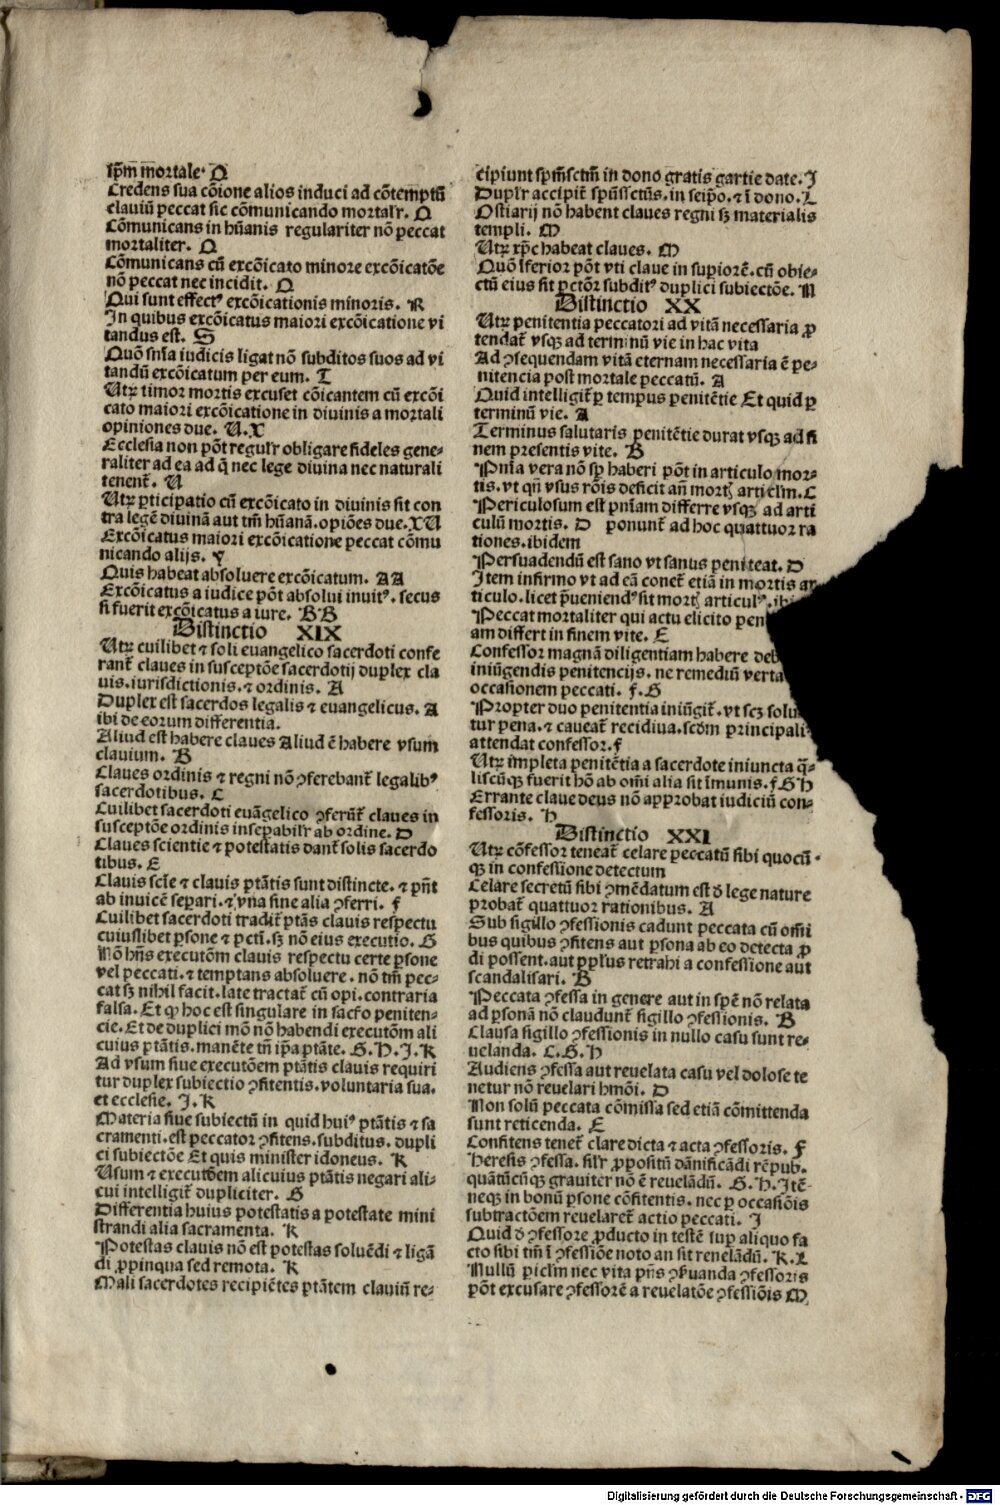 spm̄ mortale. Q
Credens sua cōione alios induci ad cōtemptū
clauiū peccat sic cōmunicando mortalr̄. Q
Cōmunicans in hūanis regulariter nō peccat
mortaliter. Q
Cōmunicans cū excōicato minore excōicatōe
nō peccat nec incidit. Q
Qui sunt effectꝰ excōicationis minoris. R
In quibus excōicatus maiori excōicatione vi
tandus est. S
Quō snīa iudicis ligat nō subditos suos ad vi
tandū excōicatum per eum. T
Utꝝ timor mortis excuset cōicantem cū excōi
cato maiori excōicatione in diuinis a mortali
opiniones due. U.X
Ecclesia non pōt regulr̄ obligare fideles gene-
raliter ad ea ad q̄ nec lege diuina nec naturali
tenent̄. U
Utꝝ ꝑticipatio cū excōicato in diuinis sit con
tra legē diuinā aut tm̄ hūanā. opiōes due. XU
Excōicatus maiori excōicatione peccat cōmu
nicando alijs. Y
Quis habeat absoluere excōicatum. AA
Excōicatus a iudice pōt absolui inuitꝰ. secus
si fuerit excōicatus a iure. BB
Distinctio XIX
Utꝝ cuilibet ⁊ soli euangelico sacerdoti confe
rant̄ claues in susceptōe sacerdotij duplex cla
uis. iurisdictionis. ⁊ ordinis. A
Duplex est sacerdos legalis ⁊ euangelicus. A
ibi de eorum differentia.
Aliud est habere claues Aliud ē habere vsum
clauium. B
Claues ordinis ⁊ regni nō ꝯferebant̄ legalibꝰ
sacerdotibus. C
Cuilibet sacerdoti euāgelico ꝯferūt̄ claues in
susceptōe ordinis inseꝑabilr̄ ab ordine. D
Claues scientie ⁊ potestatis dant̄ solis sacerdo
tibus. E
Clauis scīe ⁊ clauis ptātis sunt distincte. ⁊ pn̄t
ab inuicē seꝑari. ⁊ vna sine alia ꝯferri. f
Cuilibet sacerdoti tradit̄ ptās clauis respectu
cuiuslibet ꝑsone ⁊ pctī. sꝫ nō eius executio. G
Nō hn̄s executōm clauis respectu certe ꝑsone
vel peccati. ⁊ temptans absoluere. nō tm̄ pec-
cat sꝫ nihil facit. late tractat̄ cū opi. contraria
falsa. Et ꝙ hoc est singulare in sacr̄o peniten-
cie. Et de duplici mō nō habendi executōm ali
cuius ptātis. manēte tn̄ ip̄a ptāte. G. H. I. K
Ad vsum siue executōem ptātis clauis requiri
tur duplex subiectio ꝯfitentis. voluntaria sua.
et ecclesie. I. K
Materia siue subiectū in quid huiꝰ ptātis ⁊ sa
cramenti. est peccator ꝯfitens. subditus. dupli
ci subiectōe Et quis minister idoneus. K
Usum ⁊ executōem alicuius ptātis negari ali-
cui intelligit̄ dupliciter. G
Differentia huius potestatis a potestate mini
strandi alia sacramenta. K
Potestas clauis nō est potestas soluēdi ⁊ ligā
di ꝓpinqua sed remota. K
Mali sacerdotes recipiētes ptātem clauiū re-
cipiunt spm̄sctm̄ in dono gratis gartie date. I
Duplr̄ accipit̄ spūssctūs. in seip̄o. ⁊ ī dono. L
Ostiarij nō habent claues regni sꝫ materialis
templi. M
Utꝝ xp̄c habeat claues. M
Quō īferior pōt vti claue in suꝑiorē. cū obie-
ctū eius sit pctōr subditꝰ duplici subiectōe. N
Distinctio XX
Utꝝ penitentia peccatori ad vitā necessaria ꝓ
tendat̄ vsqꝫ ad terminū vie in hac vita
Ad ꝯsequendam vitā eternam necessaria ē pe-
nitencia post mortale peccatū. A
Quid intelligit̄ ꝑ tempus penitētie Et quid ꝑ
terminū vie. A
Terminus salutaris penitētie durat vsqꝫ ad fi
nem presentis vite. B
Pnīa vera nō sꝑ haberi pōt in articulo mor-
tis. vt qn̄ vsus rōis deficit an̄ mortꝭ articlm̄. C
Periculosum est pnīam differre vsqꝫ ad arti
culū mortis. D ponunt̄ ad hoc quattuor ra
tiones. ibidem
Persuadendū est sano vt sanus peniteat. D
Item infirmo vt ad eā conet̄ etiā in mortis ar
ticulo. licet p̄ueniendꝰ sit mortꝭ articulꝰ.
Peccat mortaliter qui actu elicito pen
am differt in finem vite. E
Confessor magnā diligentiam habere deb
iniūgendis penitencijs. ne remediū verta
occasionem peccati. f. G
Propter duo penitentia iniūgit̄. vt scꝫ solu
tur pena. ⁊ caueat̄ recidiua. scdm̄ principali
attendat confessor. f
Utꝝ impleta penitētia a sacerdote iniuncta q̄-
liscūqꝫ fuerit hō ab om̄i alia sit īmunis. f G h
Errante claue deus nō approbat iudiciū con-
fessoris. h
Distinctio XXI
Utꝝ cōfessor teneat̄ celare peccatū sibi quocū-
qꝫ in confessione detectum
Celare secretū sibi ꝯmēdatum est ð lege nature
probat̄ quattuor rationibus. A
Sub sigillo ꝯfessionis cadunt peccata cū om̄i
bus quibus ꝯfitens aut ꝑsona ab eo detecta ꝓ
di possent. aut ꝓpl̄us retrahi a confessione aut
scandalisari. B
Peccata ꝯfessa in genere aut in spē nō relata
ad ꝑsonā nō claudunt̄ sigillo ꝯfessionis. B
Clausa sigillo ꝯfessionis in nullo casu sunt re-
uelanda. C. G. H
Audiens ꝯfessa aut reuelata casu vel dolose te
netur nō reuelari hmōi. D
Non solū peccata cōmissa sed etiā cōmittenda
sunt reticenda. E
Confitens tenet̄ clare dicta ⁊ acta ꝯfessoris. f
Heresis ꝯfessa. silr̄ ꝓpositū dānificādi rēpub.
quātūcūqꝫ grauiter nō ē reuelādū. G. H. Itē-
neqꝫ in bonū ꝑsone cōfitentis. nec ꝑ occasiōis
subtractōem reuelaret̄ actio peccati. I
Quid ð ꝯfessore ꝓducto in testē suꝑ aliquo fa
cto sibi tm̄ ī ꝯfessiōe noto an sit renelādū. K. L
Nullū piclm̄ nec vita pn̄s ꝯẜuanda ꝯfessoris
pōt excusare ꝯfessorē a reuelatōe ꝯfessiōis M
Digitalisierung gefördert durch die Deutsche Forschungsgemeinschaft - DFG